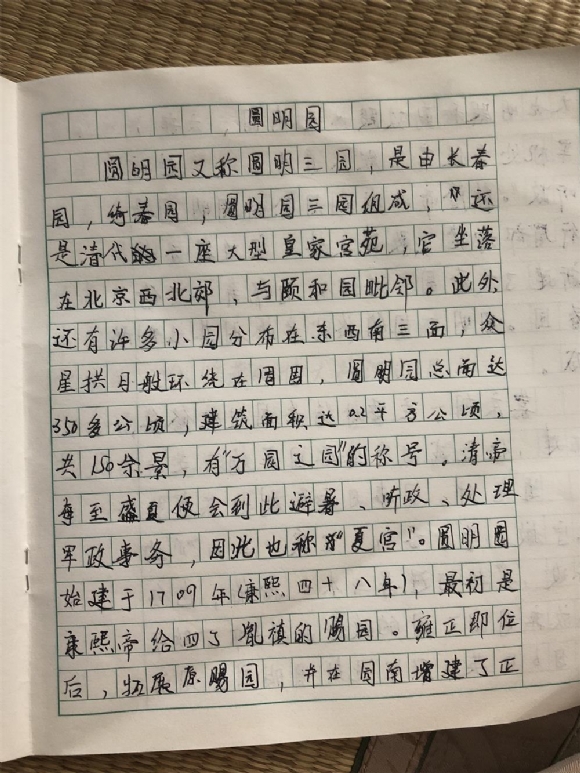 圆明园
圆明园又称圆明三园，是由长春
园，绮春园，圆明园三园组成，还
是清代一座大型皇家宫苑，它坐落
在北京西北郊，与颐和园毗邻。此外
还有许多小园分布在东西南三面，众
星拱月般环绕在周围，圆明园总面达
350多公顷，建筑面积达0.2平方公顷，
共150余景，有"万园之园"的称号。清帝
每至盛夏便会到此避暑、听政、处理
军政事务，因此也称为"夏宫"。圆明园
始建于1709年(康熙四十八年)，最初是
康熙帝给四子胤禛的赐园。雍正即位
后，拓展原赐园，并在园南增建了正